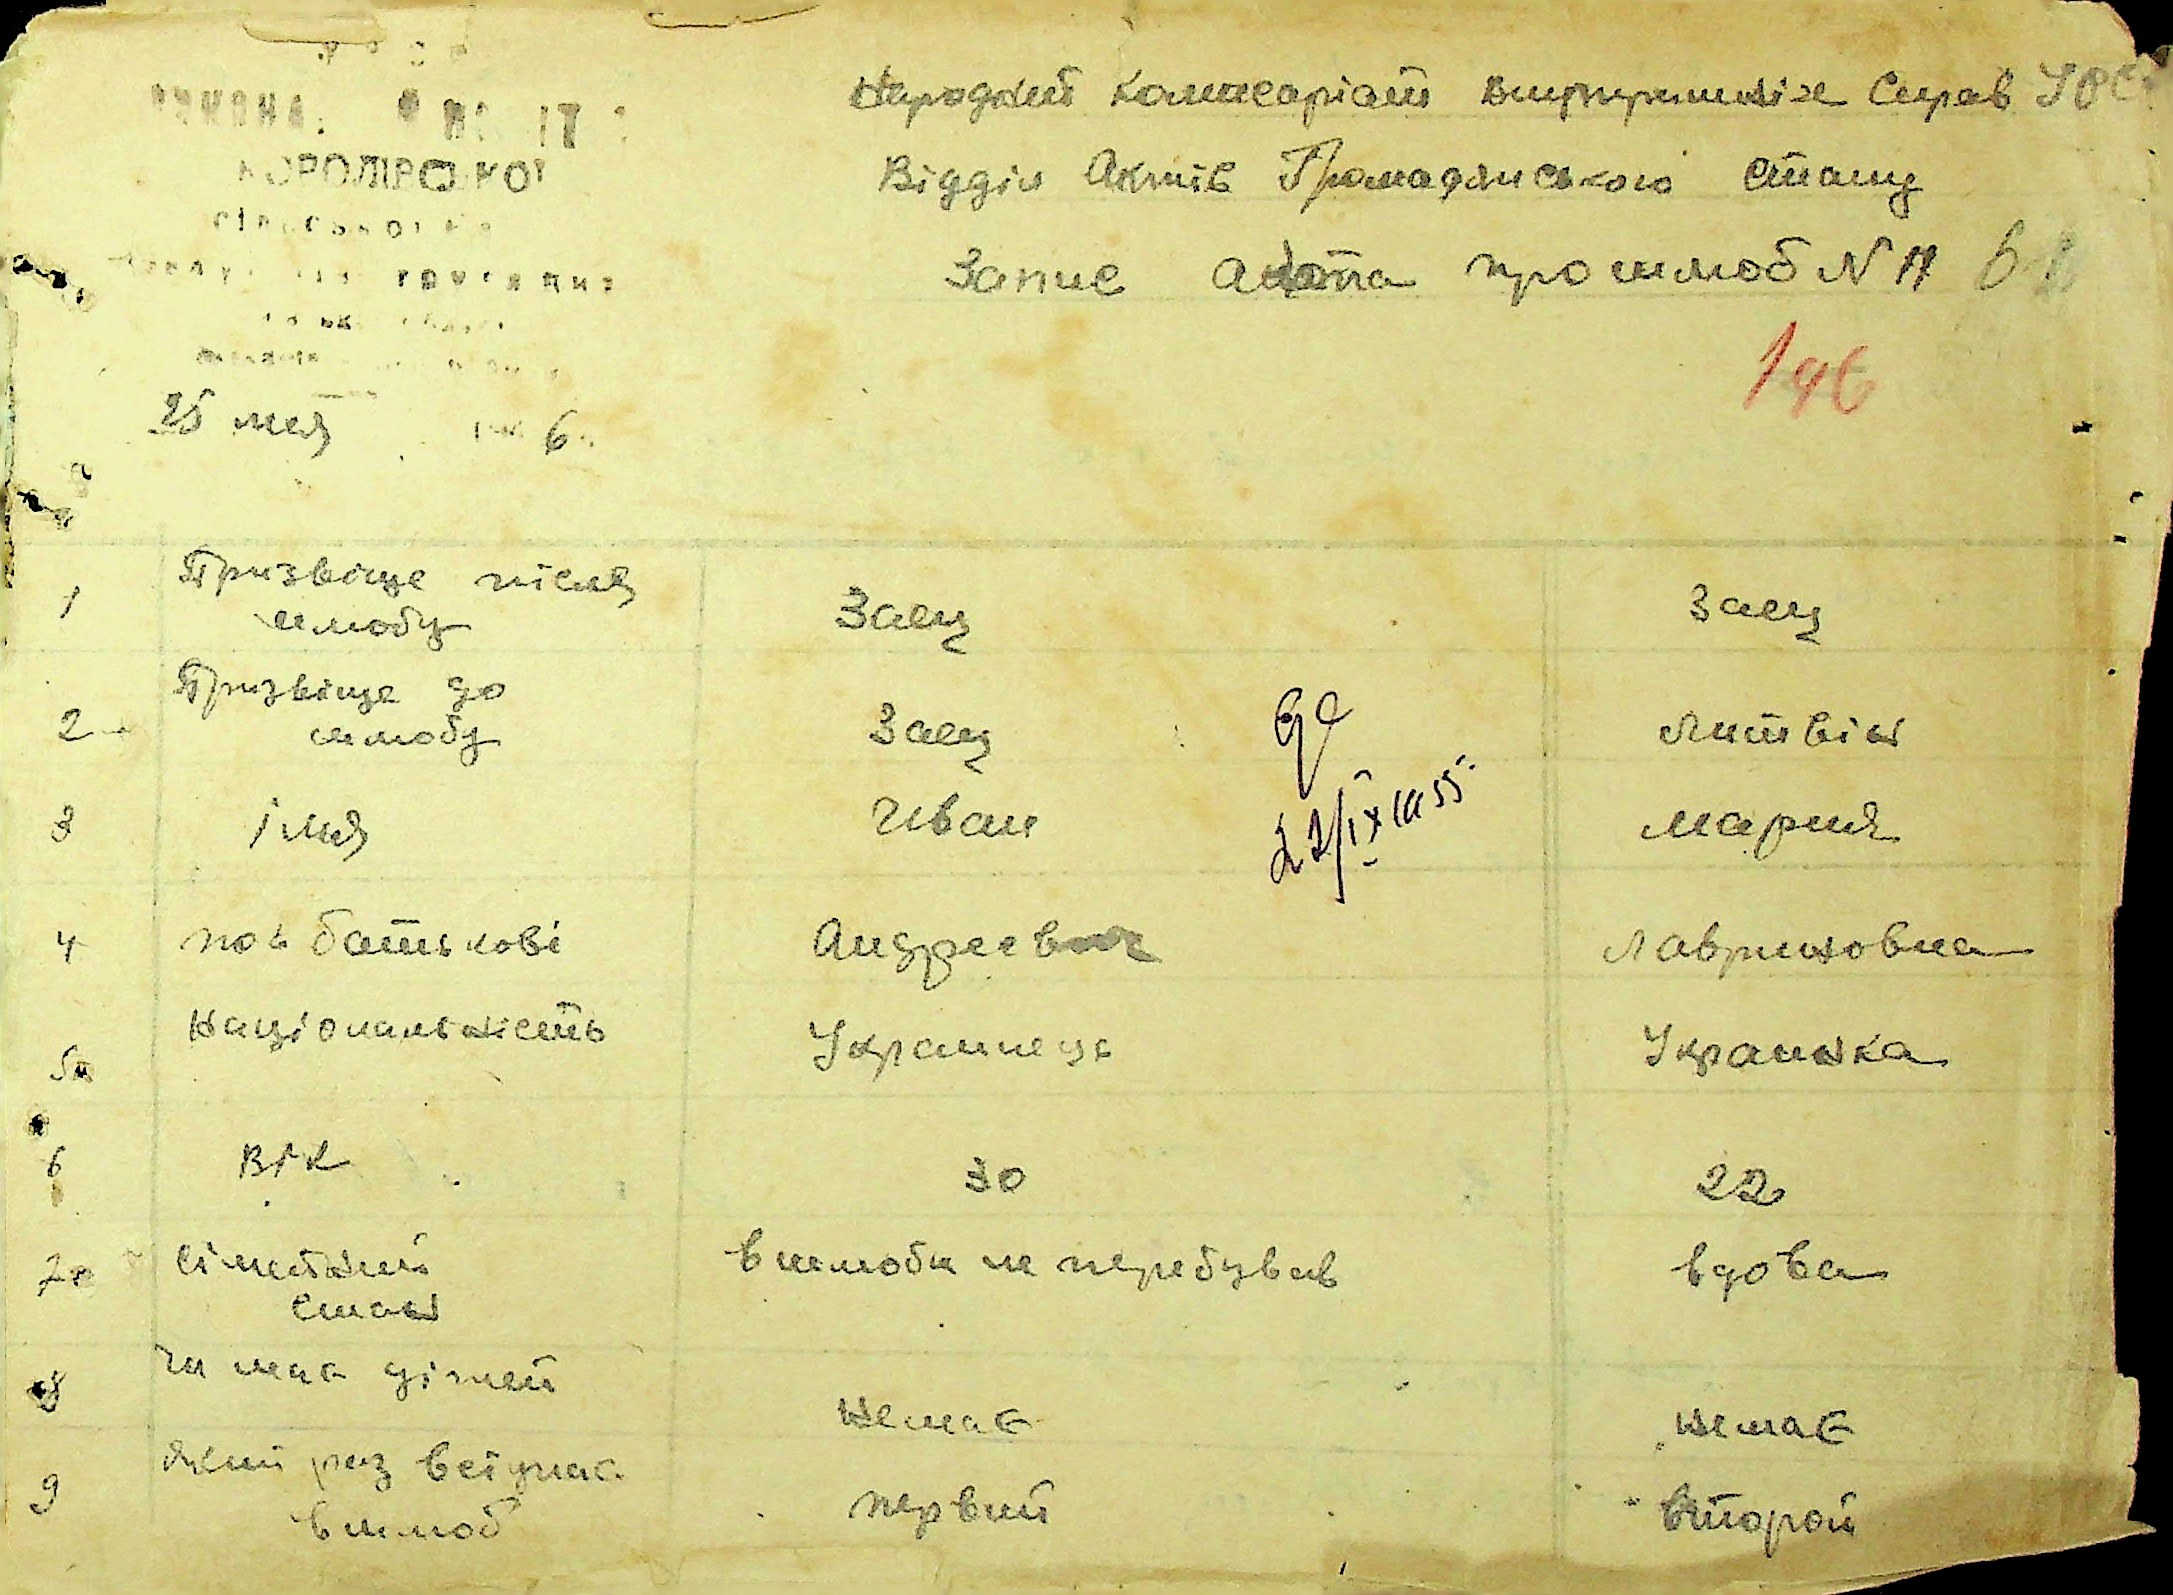 Народний Комисаріат Внутришніх Справ УРСР
Відділ Актів Громадянського Стану
Запис акта про шлюб N 17
196
25 мая 6
1 Призвіще після шлюбу Заец Заец
2 Призвіще до шлюбу Заец Литвін
3 імя Иван Мария
22/IX 1955.
4 по батькові Андреевич Лавриновна
5 Національність Украинець Украинка
6 Вік 30 22
7 сімейний стан в шлюби не перебував вдова
8 чи має дітей немає немає
9 який раз вступає в шлюб первий второй